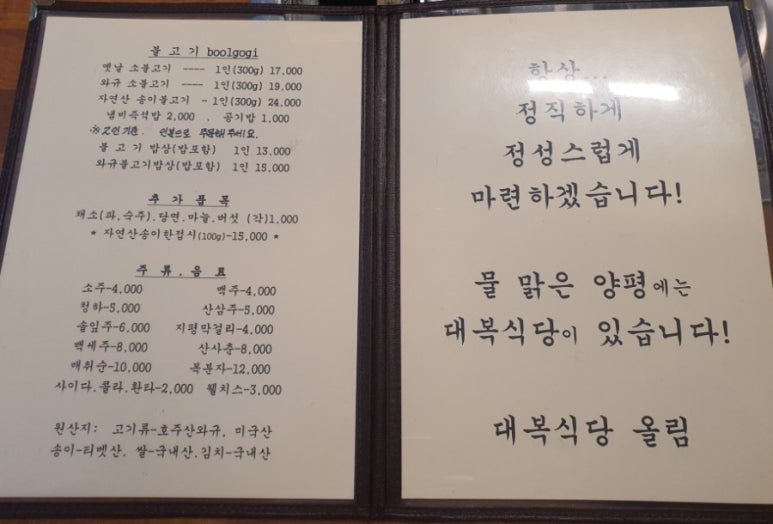 불고기 boolgogi
옛날 소불고기 ---- 1인(300g) 17.000
와규 소불고기 ---- 1인(300g) 19.000
자연산 송이불고기 - 1인(300g) 24.000
냄비즉석밥 2,000 , 공기밥 1.000
불 고 기 밥상(밥포함) 1인 13.000
와규불고기밥상(밥포함) 1인 15.000
추 가 품 목
채소(파.숙주).당면.마늘.버섯 (각)1,000
* 자연산송이한접시(100g)-15,000 *
주 류 . 음 료
소주-4,000 맥주-4,000
청하-5,000 산삼주-5,000
솔잎주-6,000 지평막걸리-4,000
백세주-8,000 산사춘-8,000
매취순-10,000 복분자-12,000
사이다.콜라.환타-2,000 웰치스-3,000
원산지: 고기류-호주산와규, 미국산
송이-티벳산, 쌀-국내산,김치-국내산
항상...
정직하게
정성스럽게
마련하겠습니다!
물 맑은 양평에는
대복식당이 있습니다!
대복식당 올림